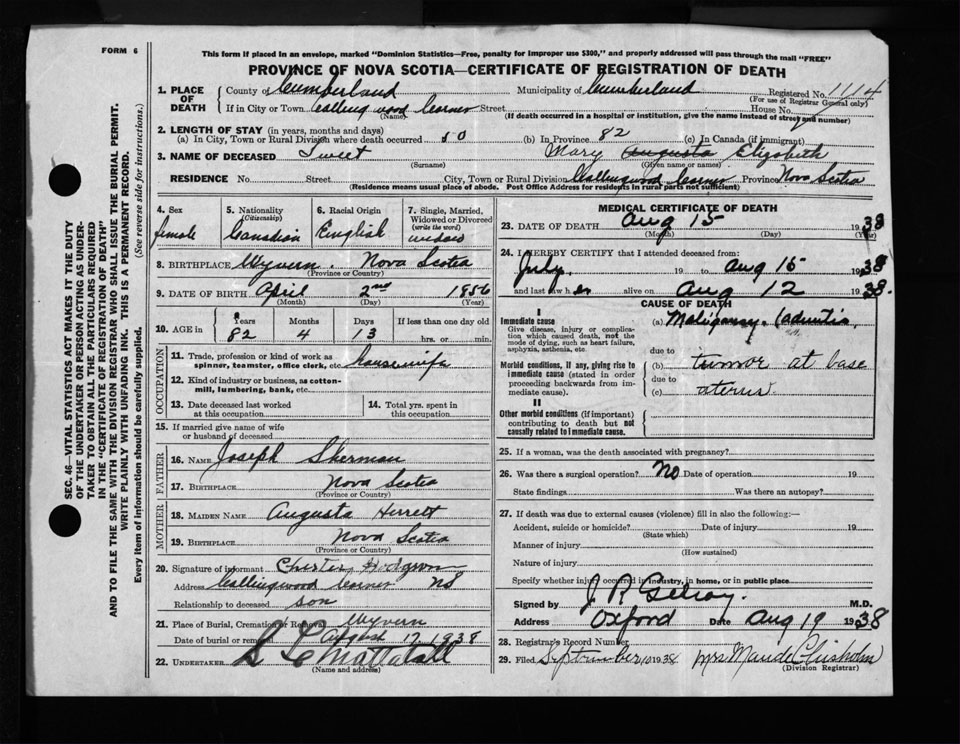 FORM 6
This form if placed in an envelope, marked "Dominion Statistics—Free, penalty for improper use $300," and properly addressed will pass through the mail "FREE"
PROVINCE OF NOVA SCOTIA—CERTIFICATE OF REGISTRATION OF DEATH
1. PLACE OF DEATH County of Cumberland Municipality of Cumberland Registered No. 1114
(For use of Registrar General only)
If in City or Town Collingwood Corner Street House No.
(Name) (If death occurred in a hospital or institution, give the name instead of street and number)
2. LENGTH OF STAY (in years, months and days)
(a) In City, Town or Rural Division where death occurred 50 (b) In Province 82 (c) In Canada (if immigrant)
3. NAME OF DECEASED Sweet Mary Augusta Elizabeth
(Surname) (Given name or names)
RESIDENCE No. Street City, Town or Rural Division Collingwood Corner Province Nova Scotia
(Residence means usual place of abode. Post Office Address for residents in rural parts not sufficient)
4. Sex female
5. Nationality (Citizenship) Canadian
6. Racial Origin English
7. Single, Married, Widowed or Divorced (write the word) widow
8. BIRTHPLACE Wyvern. Nova Scotia
(Province or Country)
9. DATE OF BIRTH April 2nd 1856
(Month) (Day) (Year)
10. AGE in Years 82 Months 4 Days 13 If less than one day old hrs. or min.
OCCUPATION
11. Trade, profession or kind of work as spinner, teamster, office clerk, etc. Housewife
12. Kind of industry or business, as cotton-mill, lumbering, bank, etc.
13. Date deceased last worked at this occupation
14. Total yrs. spent in this occupation
15. If married give name of wife or husband of deceased
FATHER
16. NAME Joseph Sherman
17. BIRTHPLACE Nova Scotia
(Province or Country)
MOTHER
18. MAIDEN NAME Augusta Herrett
19. BIRTHPLACE Nova Scotia
(Province or Country)
20. Signature of informant Chester
Address Collingwood Corner NS
Relationship to deceased son
21. Place of Burial, Cremation or Removal Wyvern
Date of burial or removal August 17 1938
22. UNDERTAKER Mattatall
(Name and address)
MEDICAL CERTIFICATE OF DEATH
23. DATE OF DEATH Aug 15 1938
(Month) (Day) (Year)
24. I HEREBY CERTIFY that I attended deceased from:
July 19 to Aug 15 1938
and last saw her alive on Aug 12 1938.
CAUSE OF DEATH
I
Immediate cause
Give disease, injury or complication which caused death, not the mode of dying, such as heart failure, asphyxia, asthenia, etc.
(a)
due to
Morbid conditions, if any, giving rise to immediate cause (stated in order proceeding backwards from immediate cause).
(b) tumor at base
due to
(c) uterus
II
Other morbid conditions (if important) contributing to death but not causally related to immediate cause.
25. If a woman, was the death associated with pregnancy?
26. Was there a surgical operation? No Date of operation 19
State findings Was there an autopsy?
27. If death was due to external causes (violence) fill in also the following:—
Accident, suicide or homicide? Date of injury 19
(State which)
Manner of injury
(How sustained)
Nature of injury
Specify whether injury occurred in industry, in home, or in public place
Signed by J. R. Gilroy. M.D.
Address Oxford Date Aug 19 1938
28. Registrar's Record Number
29. Filed September 10 1938 Mrs Maude Chisholm
(Division Registrar)
SEC. 46—VITAL STATISTICS ACT MAKES IT THE DUTY
OF THE UNDERTAKER OR PERSON ACTING AS UNDER-
TAKER TO OBTAIN ALL THE PARTICULARS REQUIRED
IN THE "CERTIFICATE OF REGISTRATION OF DEATH"
AND TO FILE THE SAME WITH THE DIVISION REGISTRAR WHO SHALL ISSUE THE BURIAL PERMIT.
WRITE PLAINLY WITH UNFADING INK. THIS IS A PERMANENT RECORD.
Every item of information should be carefully supplied. (See reverse side for instructions.)